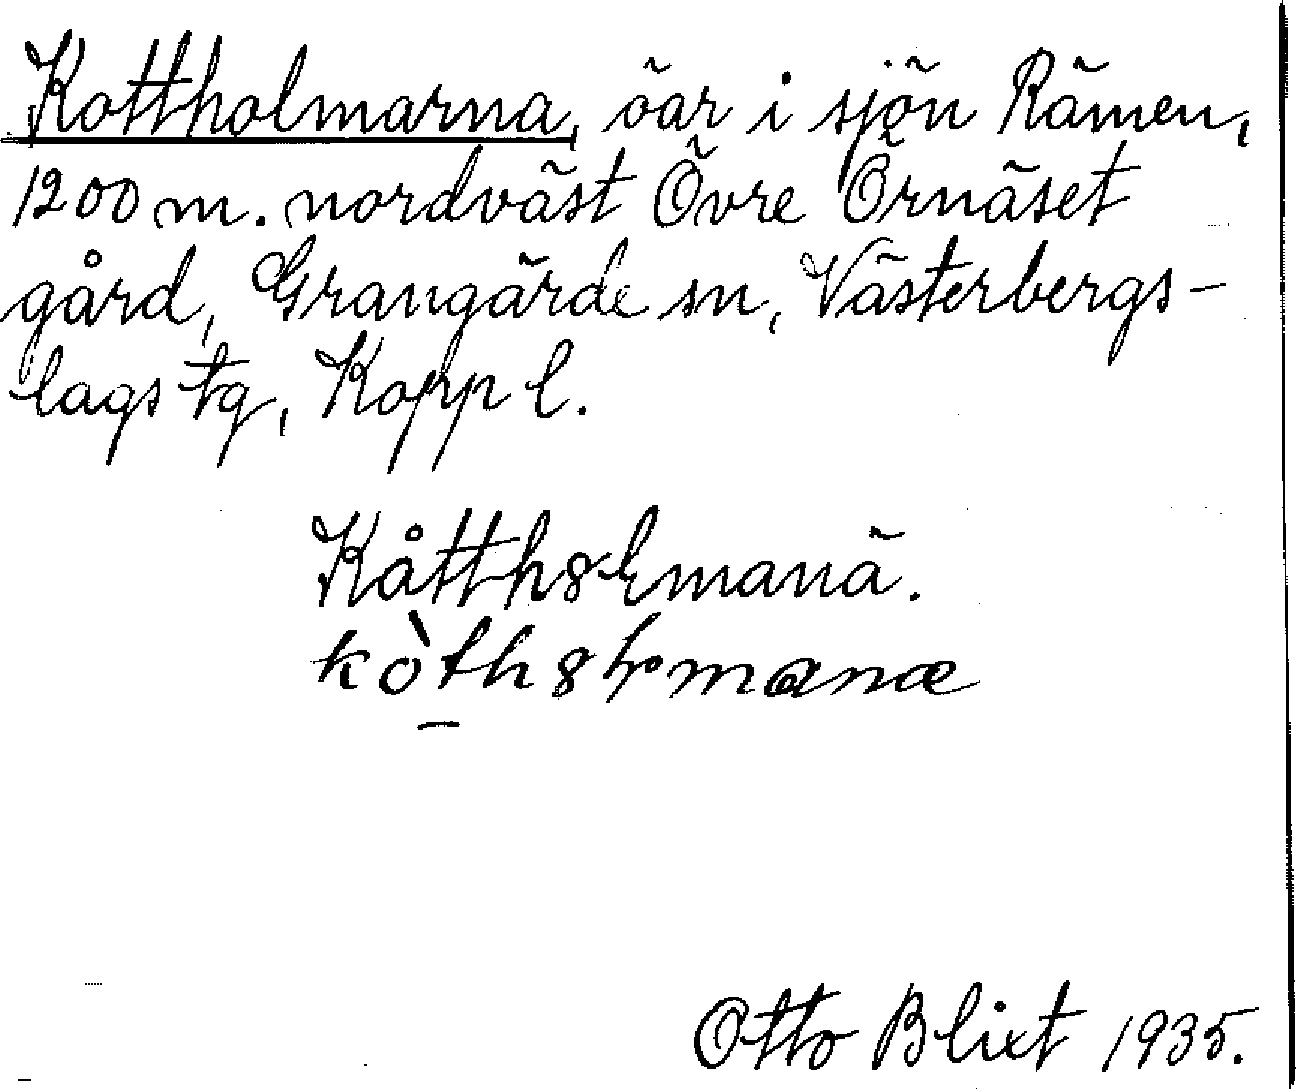 Kottholmarna, öar i sjön Rämen,
1200 m. nordväst Övre Örnäset
gård, Grangärde sn, Västerbergs-
lags tg, Kopp l.
Kåtth8ɭmanä.
kòth8ɭmanæ
Otto Blixt 1935.